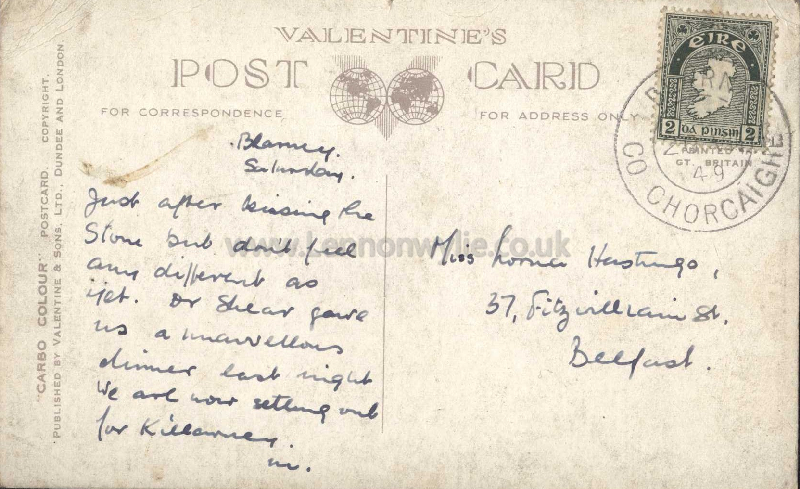 VALENTINE'S
POST CARD
FOR CORRESPONDENCE
FOR ADDRESS ONLY
"CARBO COLOUR" POSTCARD. COPYRIGHT.
PUBLISHED BY VALENTINE & SONS, LTD., DUNDEE AND LONDON.
éire
2 dá pinsin 2
PRINTED
GT. BRITAIN
49
CO CHORCAIGHE
www.Lennonwylie.co.uk
Blarney.
Saturday.
Just after kissing the
Stone but don't feel
any different as
yet. Dr Shear gave
us a marvellous
dinner last night
We are now setting out
for Killarney.
m.
Miss Lorna Hastings,
37, Fitzwilliam St.
Belfast.